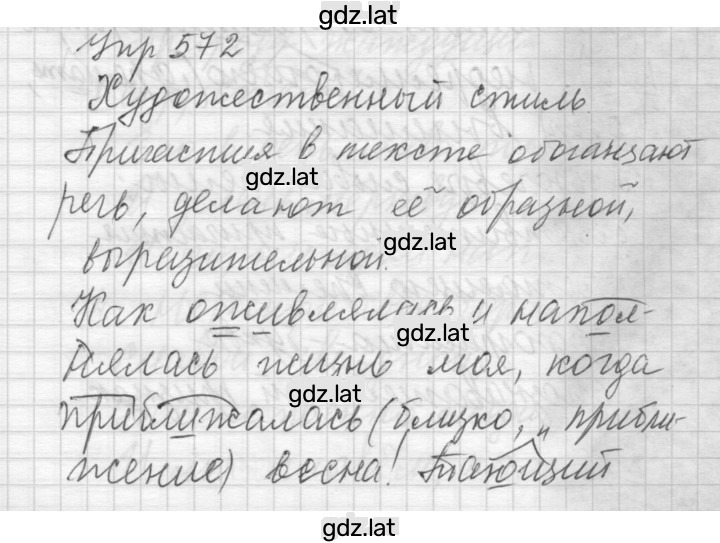 gdz.lat
Упр 572
Художественный стиль.
Причастия в тексте обогащают
gdz.lat
речь, делают её образной,
gdz.lat
выразительной.
Как оживлялась и напол-
gdz.lat
нялась жизнь моя, когда
gdz.lat
приближалась (близко, „ прибли-
жение) весна! Тающий
gdz.lat